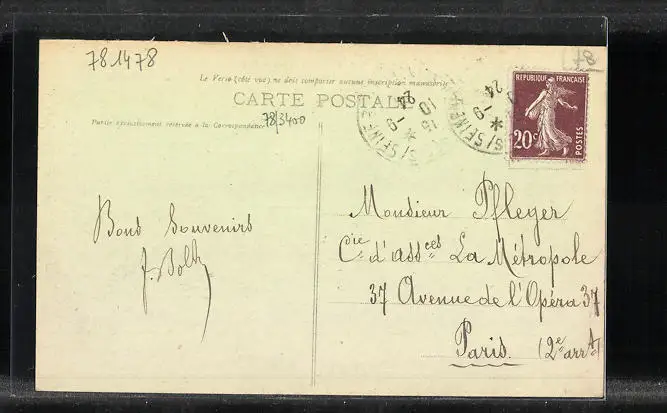 781478
78
Le Verso (côté vue) ne doit comporter aucune inscription manuscrite
CARTE POSTALE
Partie exclusivement réservée à la Correspondance
78/3400
REPUBLIQUE FRANÇAISE
20c
POSTES
S/SEINE
15
10
9
24
S/SEINE
9
24
Bons Souvenirs
J. Bolt
Monsieur Pfleger
Cie d'assces La Métropole
37 Avenue de l'Opéra 37
Paris. (2e arrt)